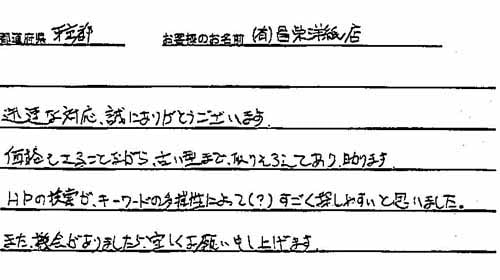 都道府県 東京都 お客様のお名前 (有)昌栄洋紙店
迅速な対応、誠にありがとうございます。
価格もさることながら、古い型まで、取りそろえてあり、助かります。
HPの検索が、キーワードの多様性によって(?)すごく探しやすいと思いました。
また、機会がありましたら、宜しくお願い申し上げます。